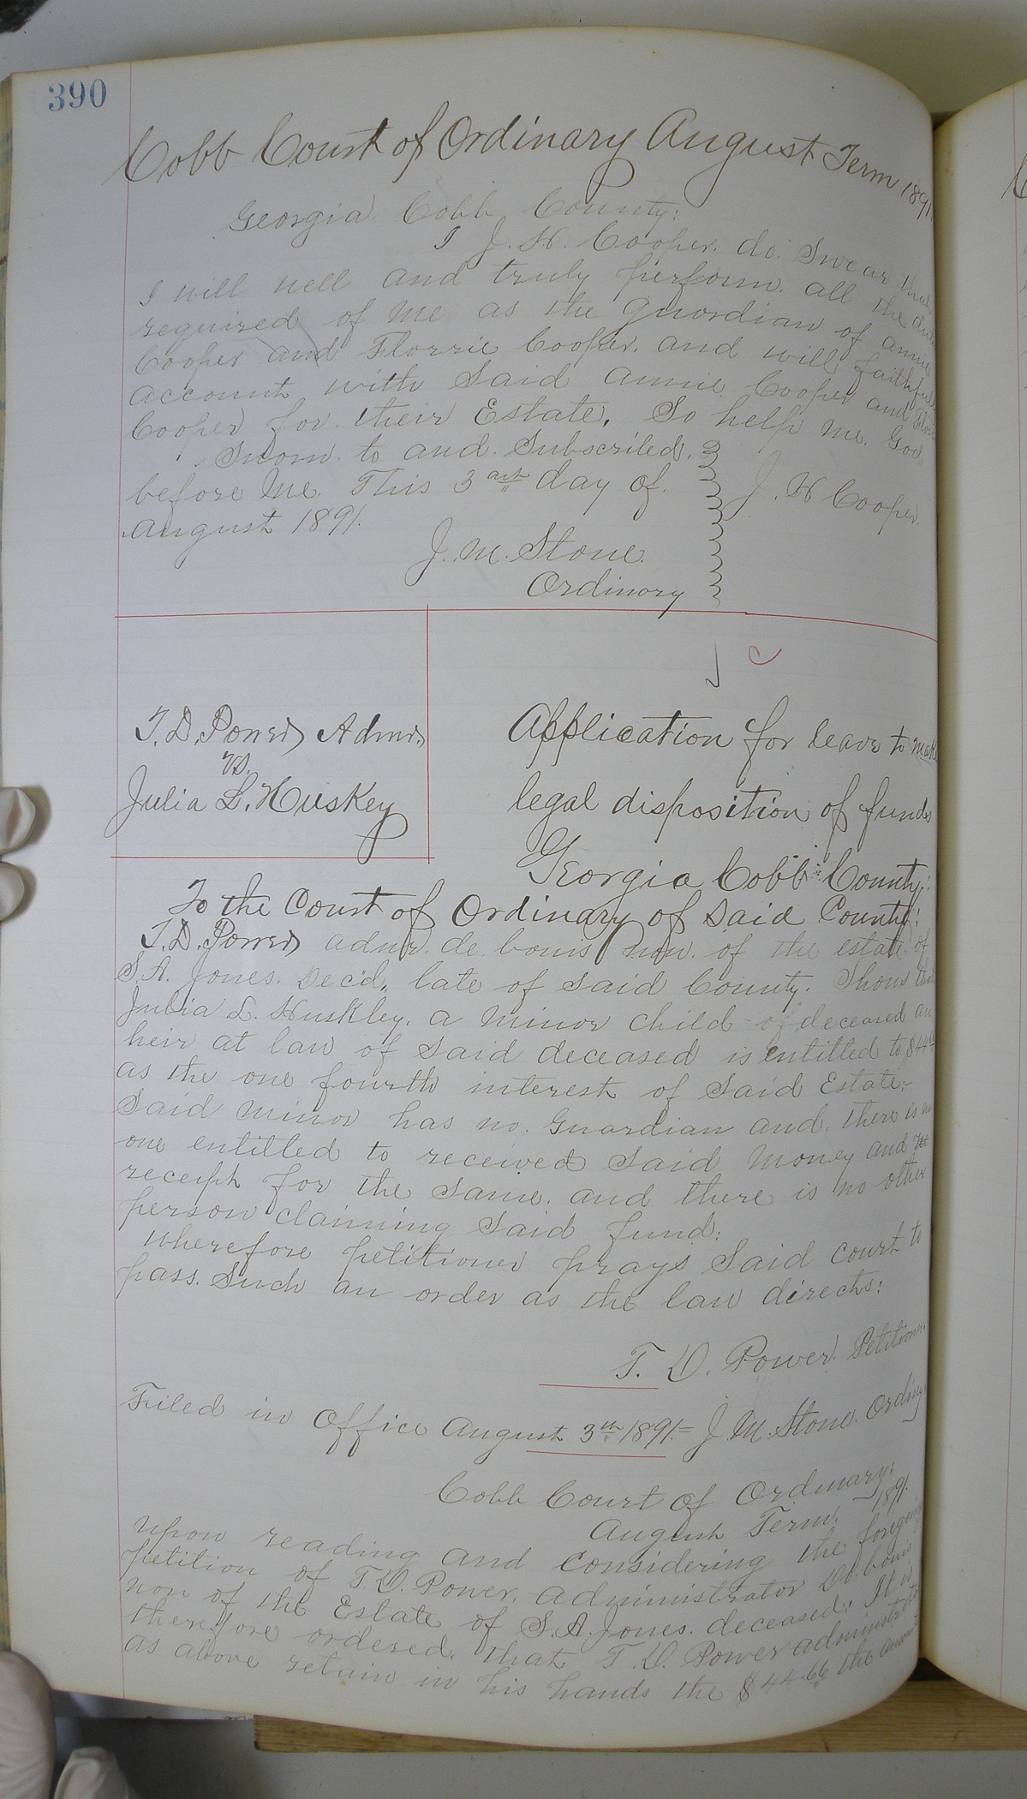 390
Cobb Court of Ordinary August Term 1891
Georgia Cobb County:
I J. H. Cooper. do. Swear that
I will well and truly perform. all the
required of me as the Guardian of annie
Cooper and Florrie Cooper. and will faithfully
account with Said annie Cooper and
Cooper for their Estate. So help me. God
Sworn to and Subscribed.
before Me. This 3 day of.
august 1891.
J. H Cooper.
J. M. Stone.
Ordinary
T. D. Power Admr.
vs.
Julia L. Huskey
Application for leave to make
legal disposition of funds
Georgia Cobb County:
To the Court of Ordinary of Said County:
T. D. Power admr. de bonis non. of the estate of
S. A. Jones. Decd., late of Said County. Shows that
Julia L. Huskley. a minor child of deceased an
heir at law of Said deceased is entitled to
as the one fourth interest of Said Estate.
Said minor has no. Guardian and. there is no
one entitled to received Said Money and
receipt for the Same. and there is no other
person claiming Said fund:
wherefore petitioner prays Said court to
pass. Such an order as the law directs:
T. D. Power. Petitioner
Filed in Office August 3th 1891 = J. M. Stone. Ordinary
Cobb Court of Ordinary:
August Term. 1891.
Upon reading and considering the foregoing
petition of T. D. Power. administrator De bonis
non of the Estate of S. A. Jones. deceased. It is
therefore ordered. that T. D. Power administrator
as above retain in his hands the $44.66 the amount